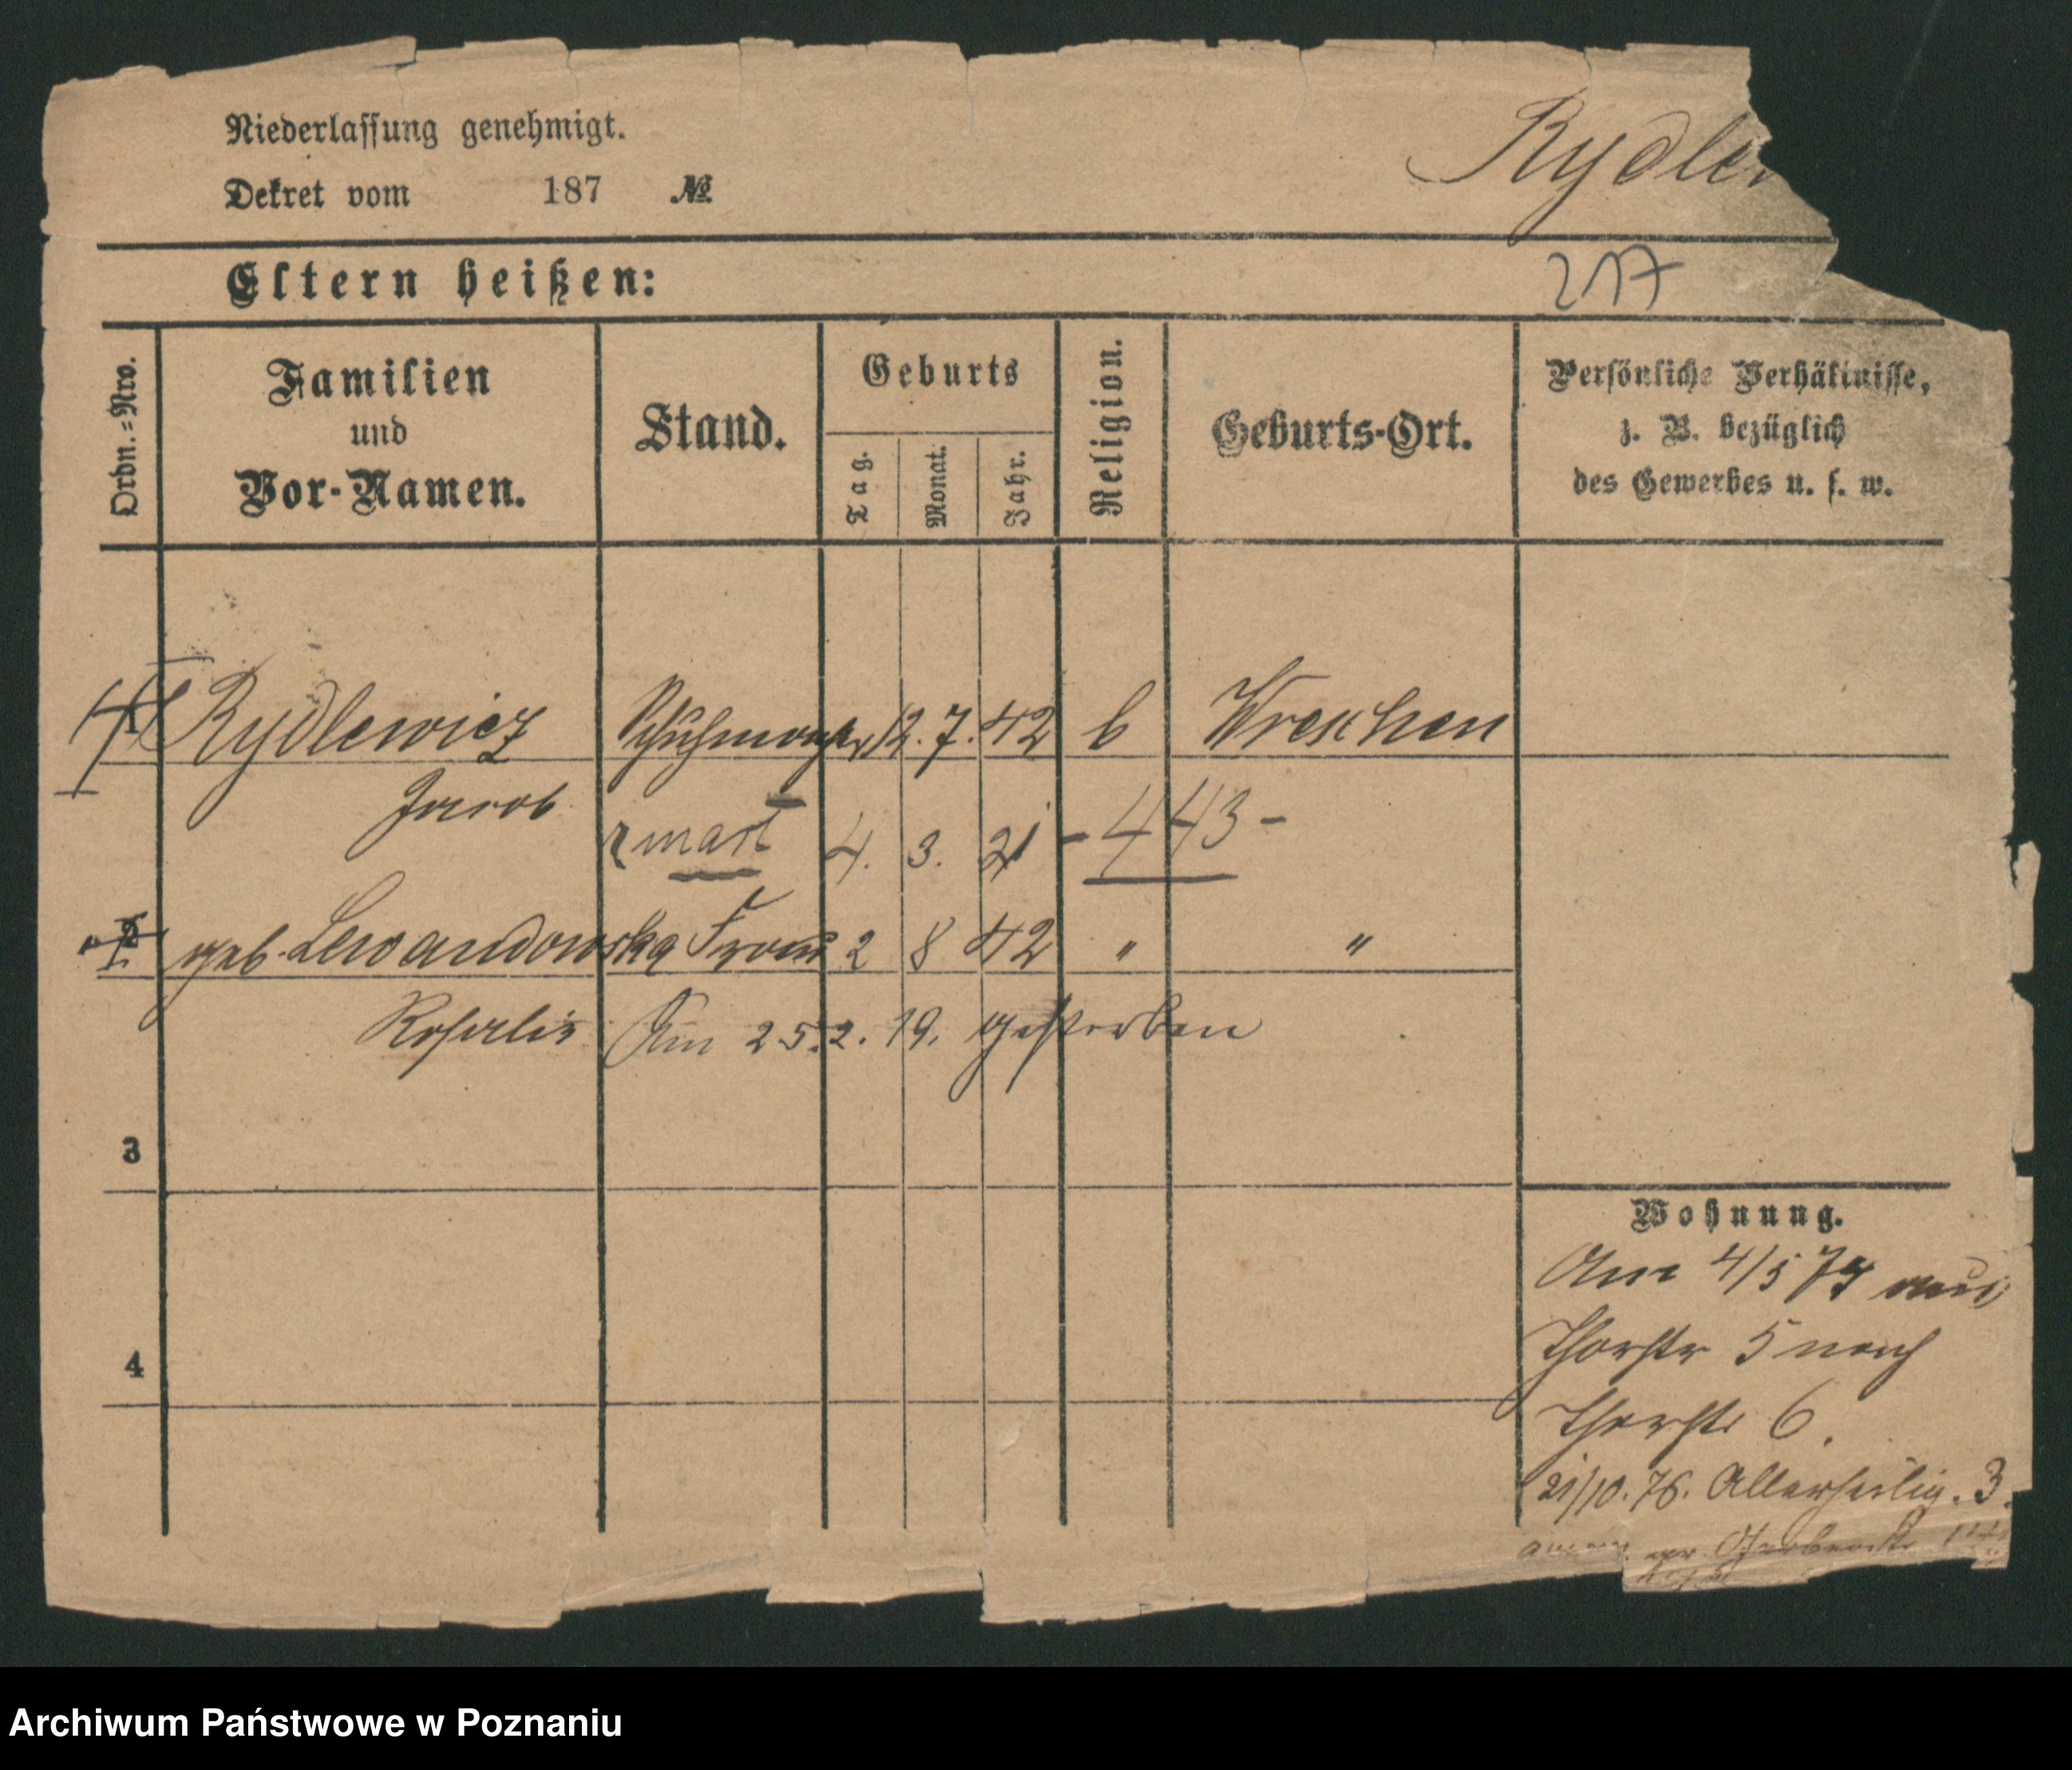 Niederlassung genehmigt.
Dekret vom 187 №
Rydle
217
Eltern heißen:
Ordn.=Nro.
Familien
und
Vor-Namen.
Stand.
Geburts
Tag.
Monat.
Jahr.
Religion.
Geburts-Ort.
Persönliche Verhältnisse,
z. B. bezüglich
des Gewerbes u. s. w.
1 Rydlewicz Schuhmacher 12. 7. 42 k Wreschen
Jacob
zmarł 4. 3. 21 - 443 -
2 geb. Lewandowska Frau 2 8 42 " "
Rosalie Am 25.2.19. gestorben
3
4
Wohnung.
Am 4/5 74 aus
Thorstr 5 nach
Thorstr 6.
21/10. 76. Allerheilig. 3.
Archiwum Państwowe w Poznaniu